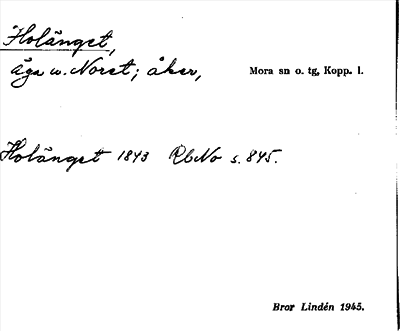 Holänget,
äga u. Noret; åker, Mora sn o. tg, Kopp. l.
Holänget 1843 RbNo s. 845.
Bror Lindén 1945.